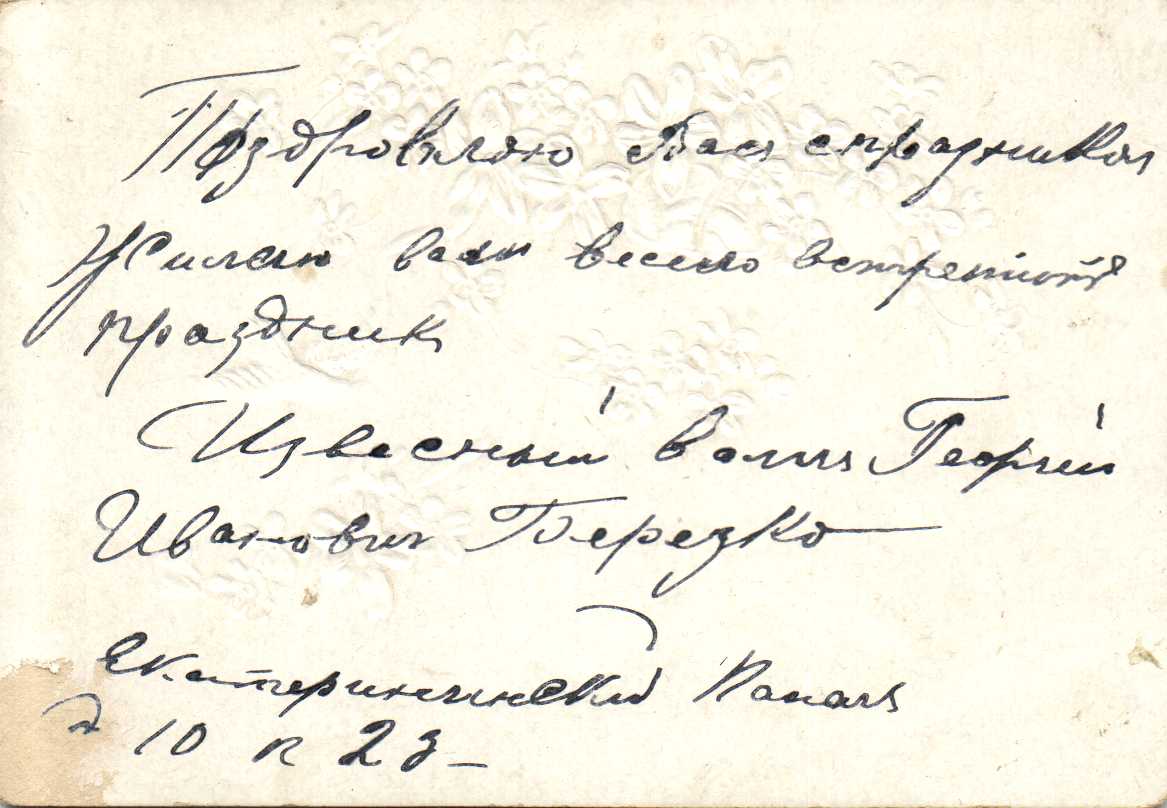 Поздровляю Вас спраздником
Жилаю вам весело встретить
праздник
Извесный вамъ Георгий
Иванович Березко
Екатерининский Каналъ
д 10 к 23